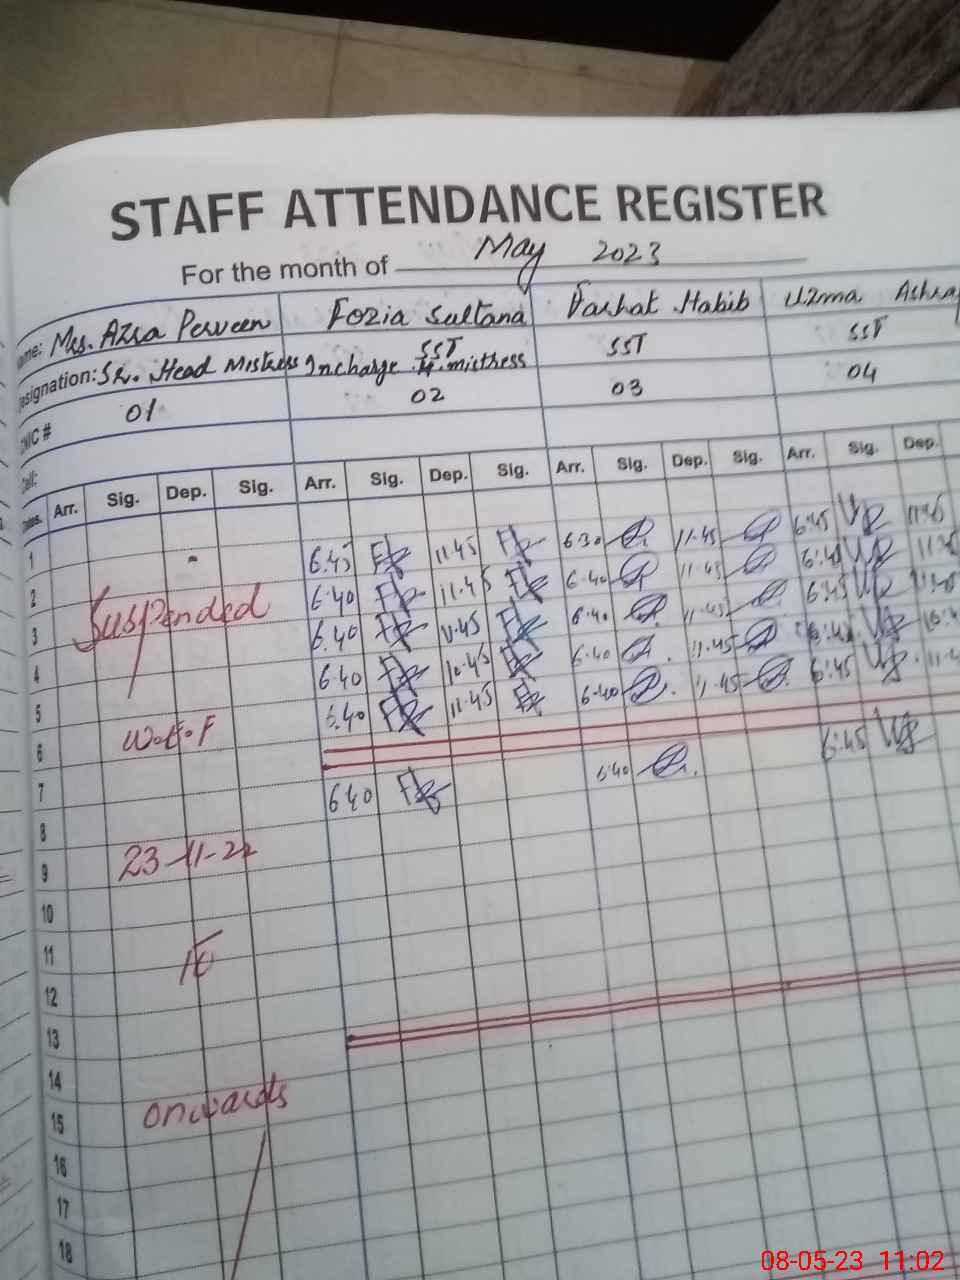 STAFF ATTENDANCE REGISTER
For the month of May 2023
me: Mrs. Azra Perveen Fozia Sultana Farhat Habib Uzma Ashra
esignation: Sr. Head Mistress Incharge SST H. mistress SST SST
NIC # 01 02 03 04
Cell:
Dates. Arr. Sig. Dep. Sig. Arr. Sig. Dep. Sig. Arr. Sig. Dep. Sig. Arr. Sig. Dep.
1 6.45 11.45 6.30 11.45 6:45 11:45
2 6.40 11.45 6.40 11.45 6:40
3 Suspended 6.40 11.45 6.40 11.45 6:45
4 6.40 10.45 6.40 11.45
5 6.40 11.45 6.40 11.45 6:45
6 w.e.f
7 640 6.40 6:45
8
9 23-11-22
10
11 To
12
13
14
15 onwards
16
17
18
08-05-23 11:02